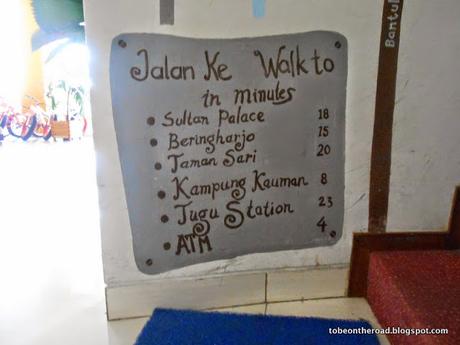 Jalan Ke Walk to
in minutes
Sultan Palace 18
Beringharjo 15
Taman Sari 20
Kampung Kauman 8
Tugu Station 23
ATM 4
Bantul
tobeontheroad.blogspot.com